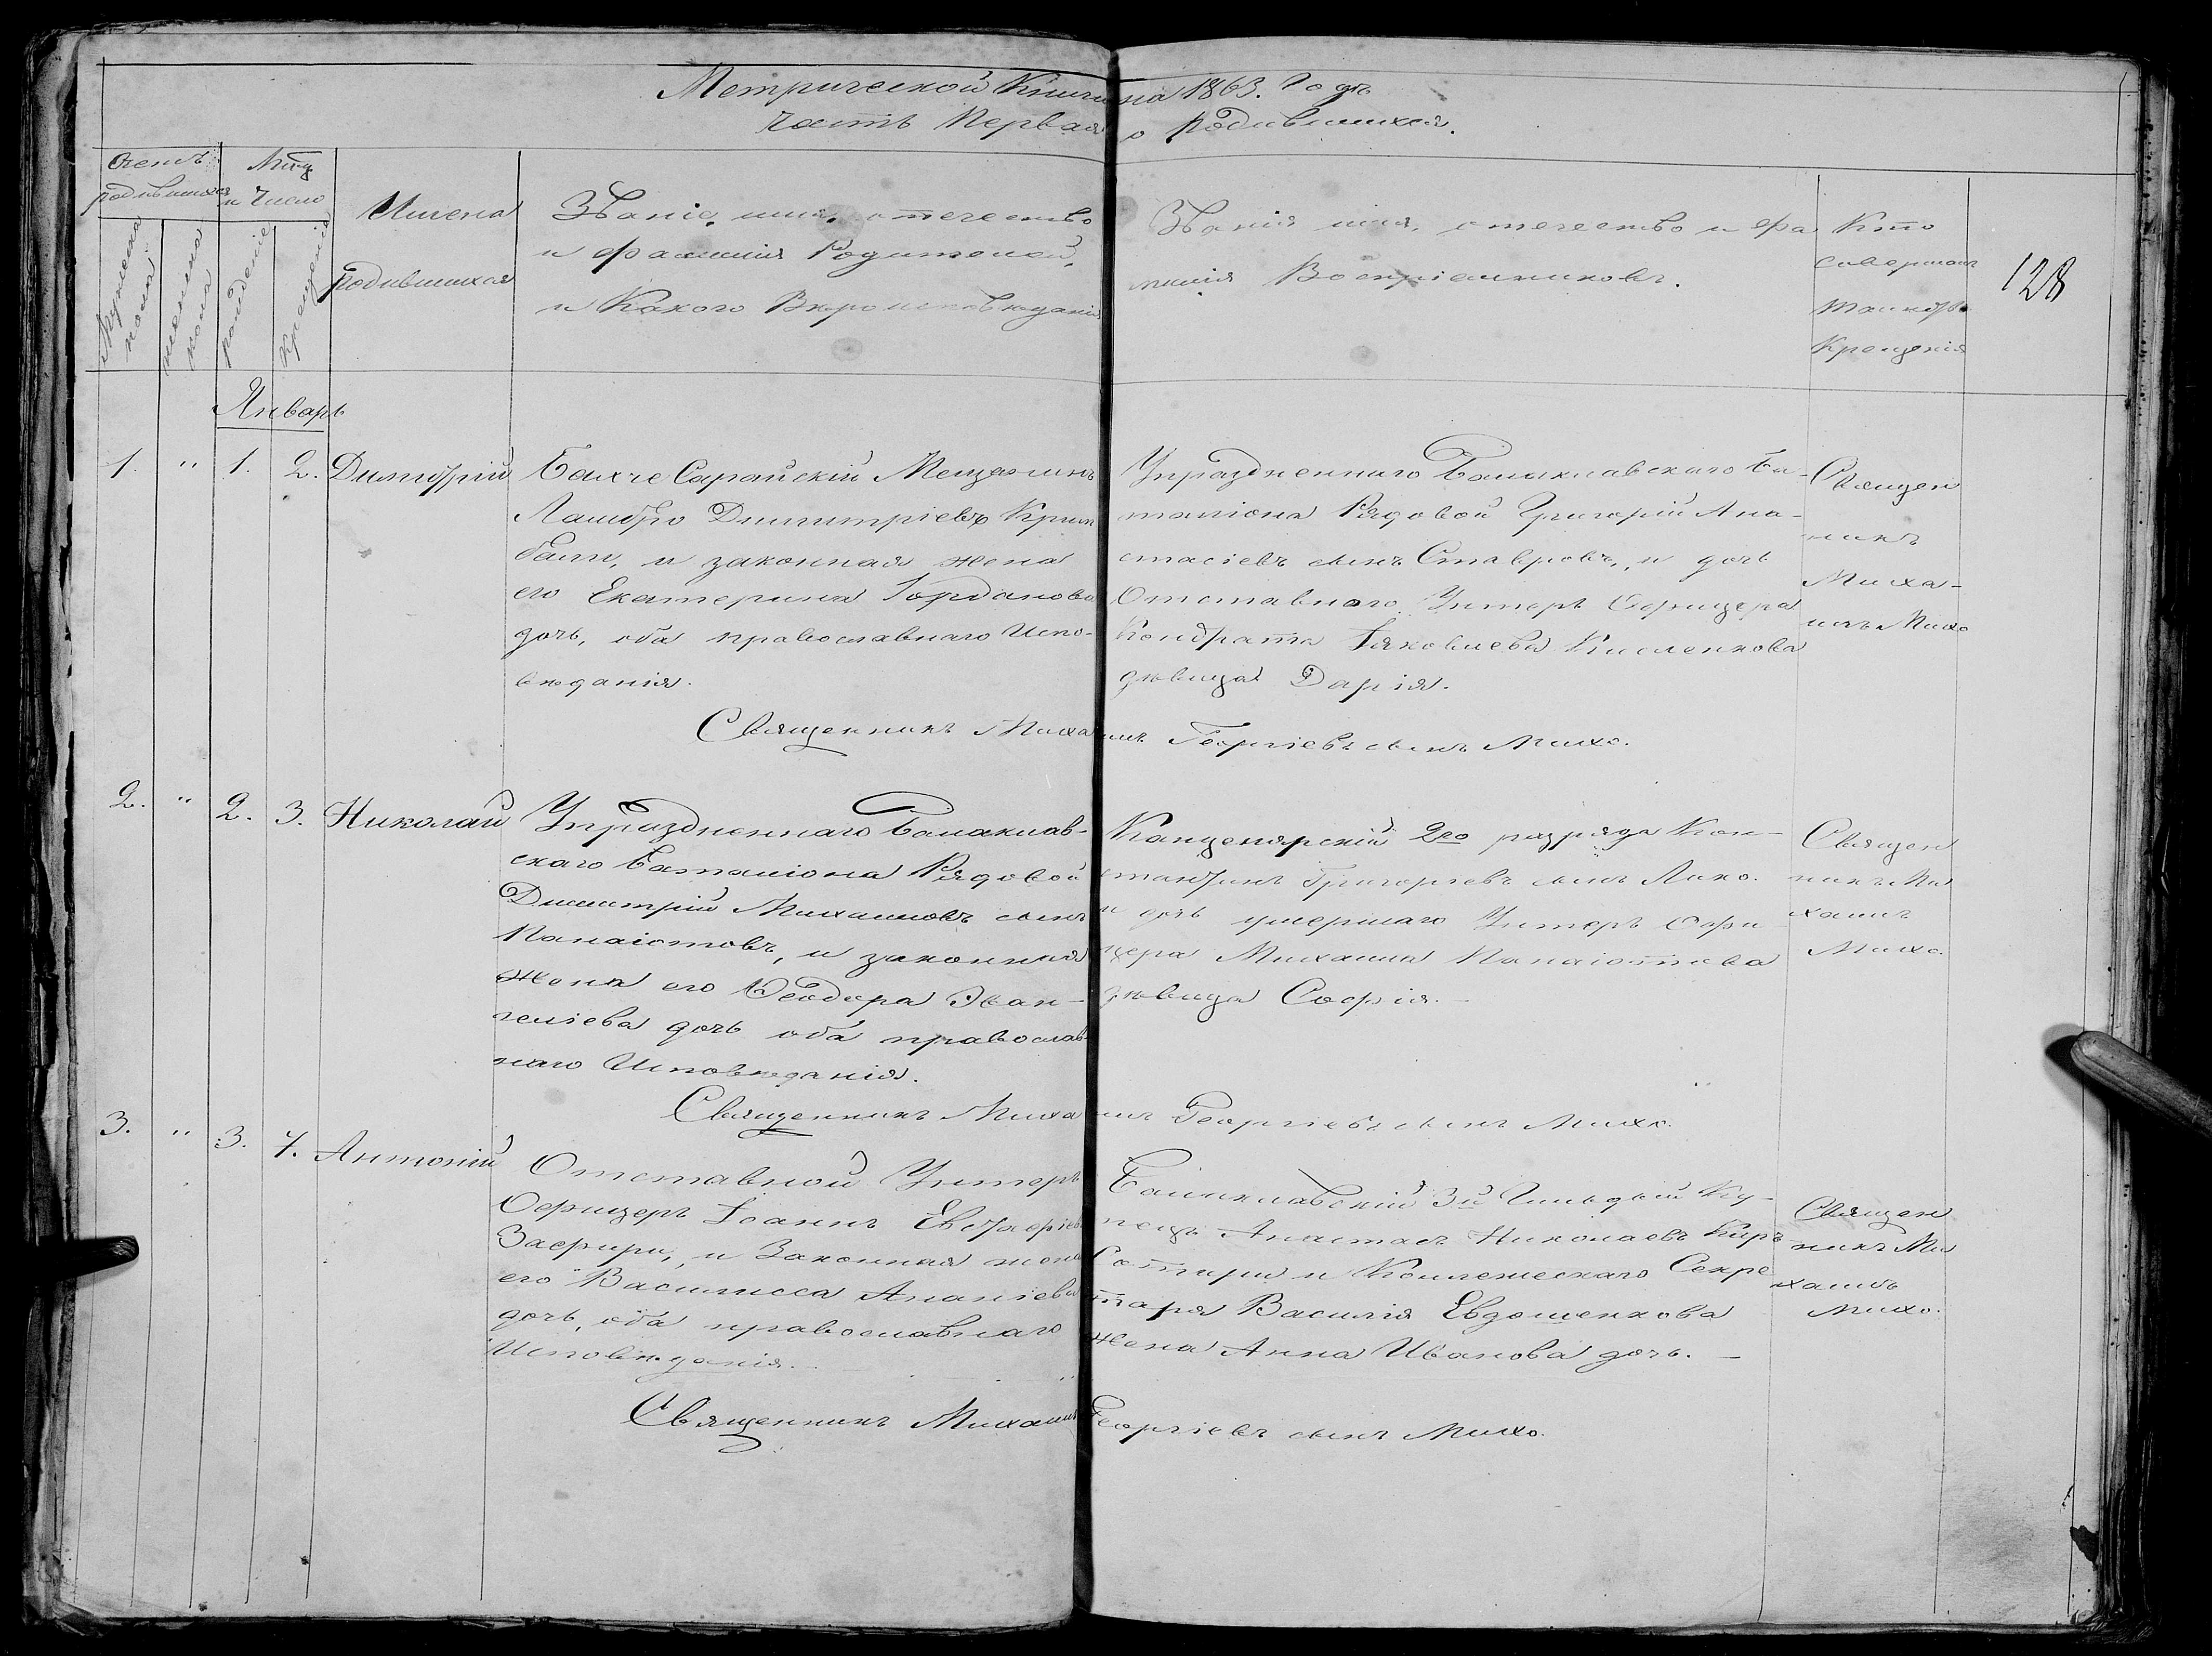 Метрической Книги на 1863. Годъ
Часть Первая о Родившихся.
Счетъ родившихся
Мцъ и Число
Имена родившихся
Званіе, имя, отечество
и фамилія Родителей,
и Какого Вѣроисповѣданія
Званія имя, отечество и фа
милія Воспріемниковъ.
Кто
совершалъ
таинство
Крещенія
128
Мужеска пола
женска пола
рожденіе
Крещеніе
Январь
1. " 1. 2. Димитрій
Бахче Сарайскій Мещанинъ
Ламбро Димитріевъ
и законная жена
его Екатерина Іорданова
дочь, оба православнаго Испо-
вѣданія.
Упраздненнаго Балаклавскаго Ба-
таліона Рядовой Григорій Ана-
стасіевъ сынъ Ставровъ, и дочь
Отставнаго Унтеръ Офицера
Кондрата Іяковлева Кисленкова
дѣвица Дарія.
Священ
никъ
Миха-
илъ Михо
Священникъ Михаилъ Георгіевъ сынъ Михо.
2. " 2. 3. Николай
Упраздненнаго Балаклав-
скаго Баталіона Рядовой
Димитрій Михаиловъ сынъ
Панаіотовъ, и законная
жена его Ѳеодора Эван-
геліева дочь оба православ-
наго Исповѣданія.
Канцелярскій 2го разряда Кон-
стантинъ Григоріевъ сынъ Лико.
и дочь умершаго Унтеръ Офи
цера Михаила Панаіотова
дѣвица Софія.-
Священ
никъ Ми
хаилъ
Михо.
Священникъ Михаилъ Георгіевъ сынъ Михо.
3. " 3. 7. Антоній
Отставной Унтеръ
Офицеръ Іоаннъ Евстаѳіевъ
Зафири, и Законная жена
его Василиса Ананіева
дочь, оба православнаго
Исповѣданія.
Балаклавскій 3й Гильдіи Ку-
пецъ Анастасъ Николаевъ Киръ
и Коллежескаго Секре
таря Василія Евдошенкова
жена Анна Иванова дочь. -
Священ
никъ Ми
хаилъ
Михо.
Священникъ Михаилъ Георгіевъ сынъ Михо.